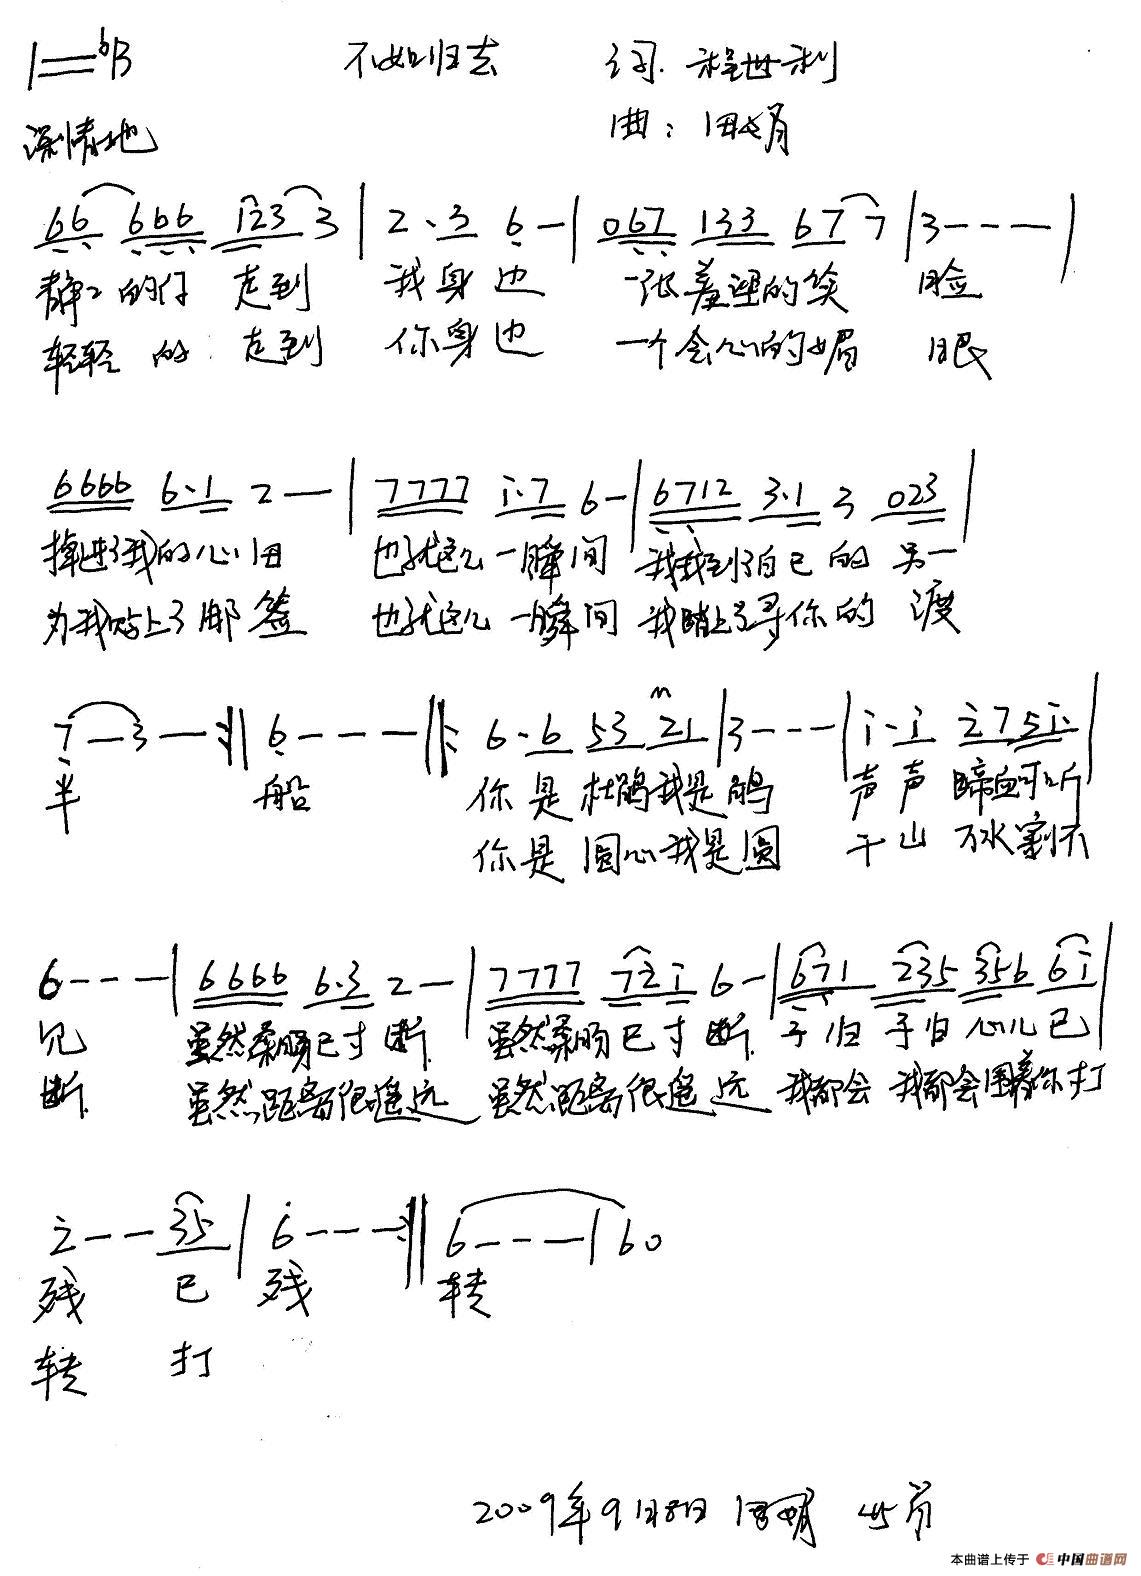 1=♭B 不如归去 词:程世利
深情地 曲:田娟
66 666 123 3 | 2·3 6- | 067 133 67 7 | 3--- |
静静的你 走到 我身边 一张羞涩的笑 脸
轻轻的 走到 你身边 一个会心的媚 眼
6666 6·1 2- | 7777 i·7 6- | 6712 3·1 3 023 |
掉进了我的心田 也就这么一瞬间 我找到了自己的 另一
为我贴上了邮签 也就这么一瞬间 我踏上了寻你的 渡
7-3-:|| 6---||: 6·6 53 21 | 3--- | i·i 275i· |
半 船 你是杜鹃我是鹃 声声 啼血可听
你是圆心我是圆 千山 万水割不
6--- | 6666 6·3 2- | 7777 72i 6- | 671 235 356 6i |
见 虽然柔肠已寸断 虽然柔肠已寸断 子归 子归 心儿已
断 虽然距离很遥远 虽然距离很遥远 我都会 我都会围着你打
2--35 | 6---:|| 6---| 60
残 已 残 转
转 打
2009年9月8日 田娟
本曲谱上传于 中国曲谱网